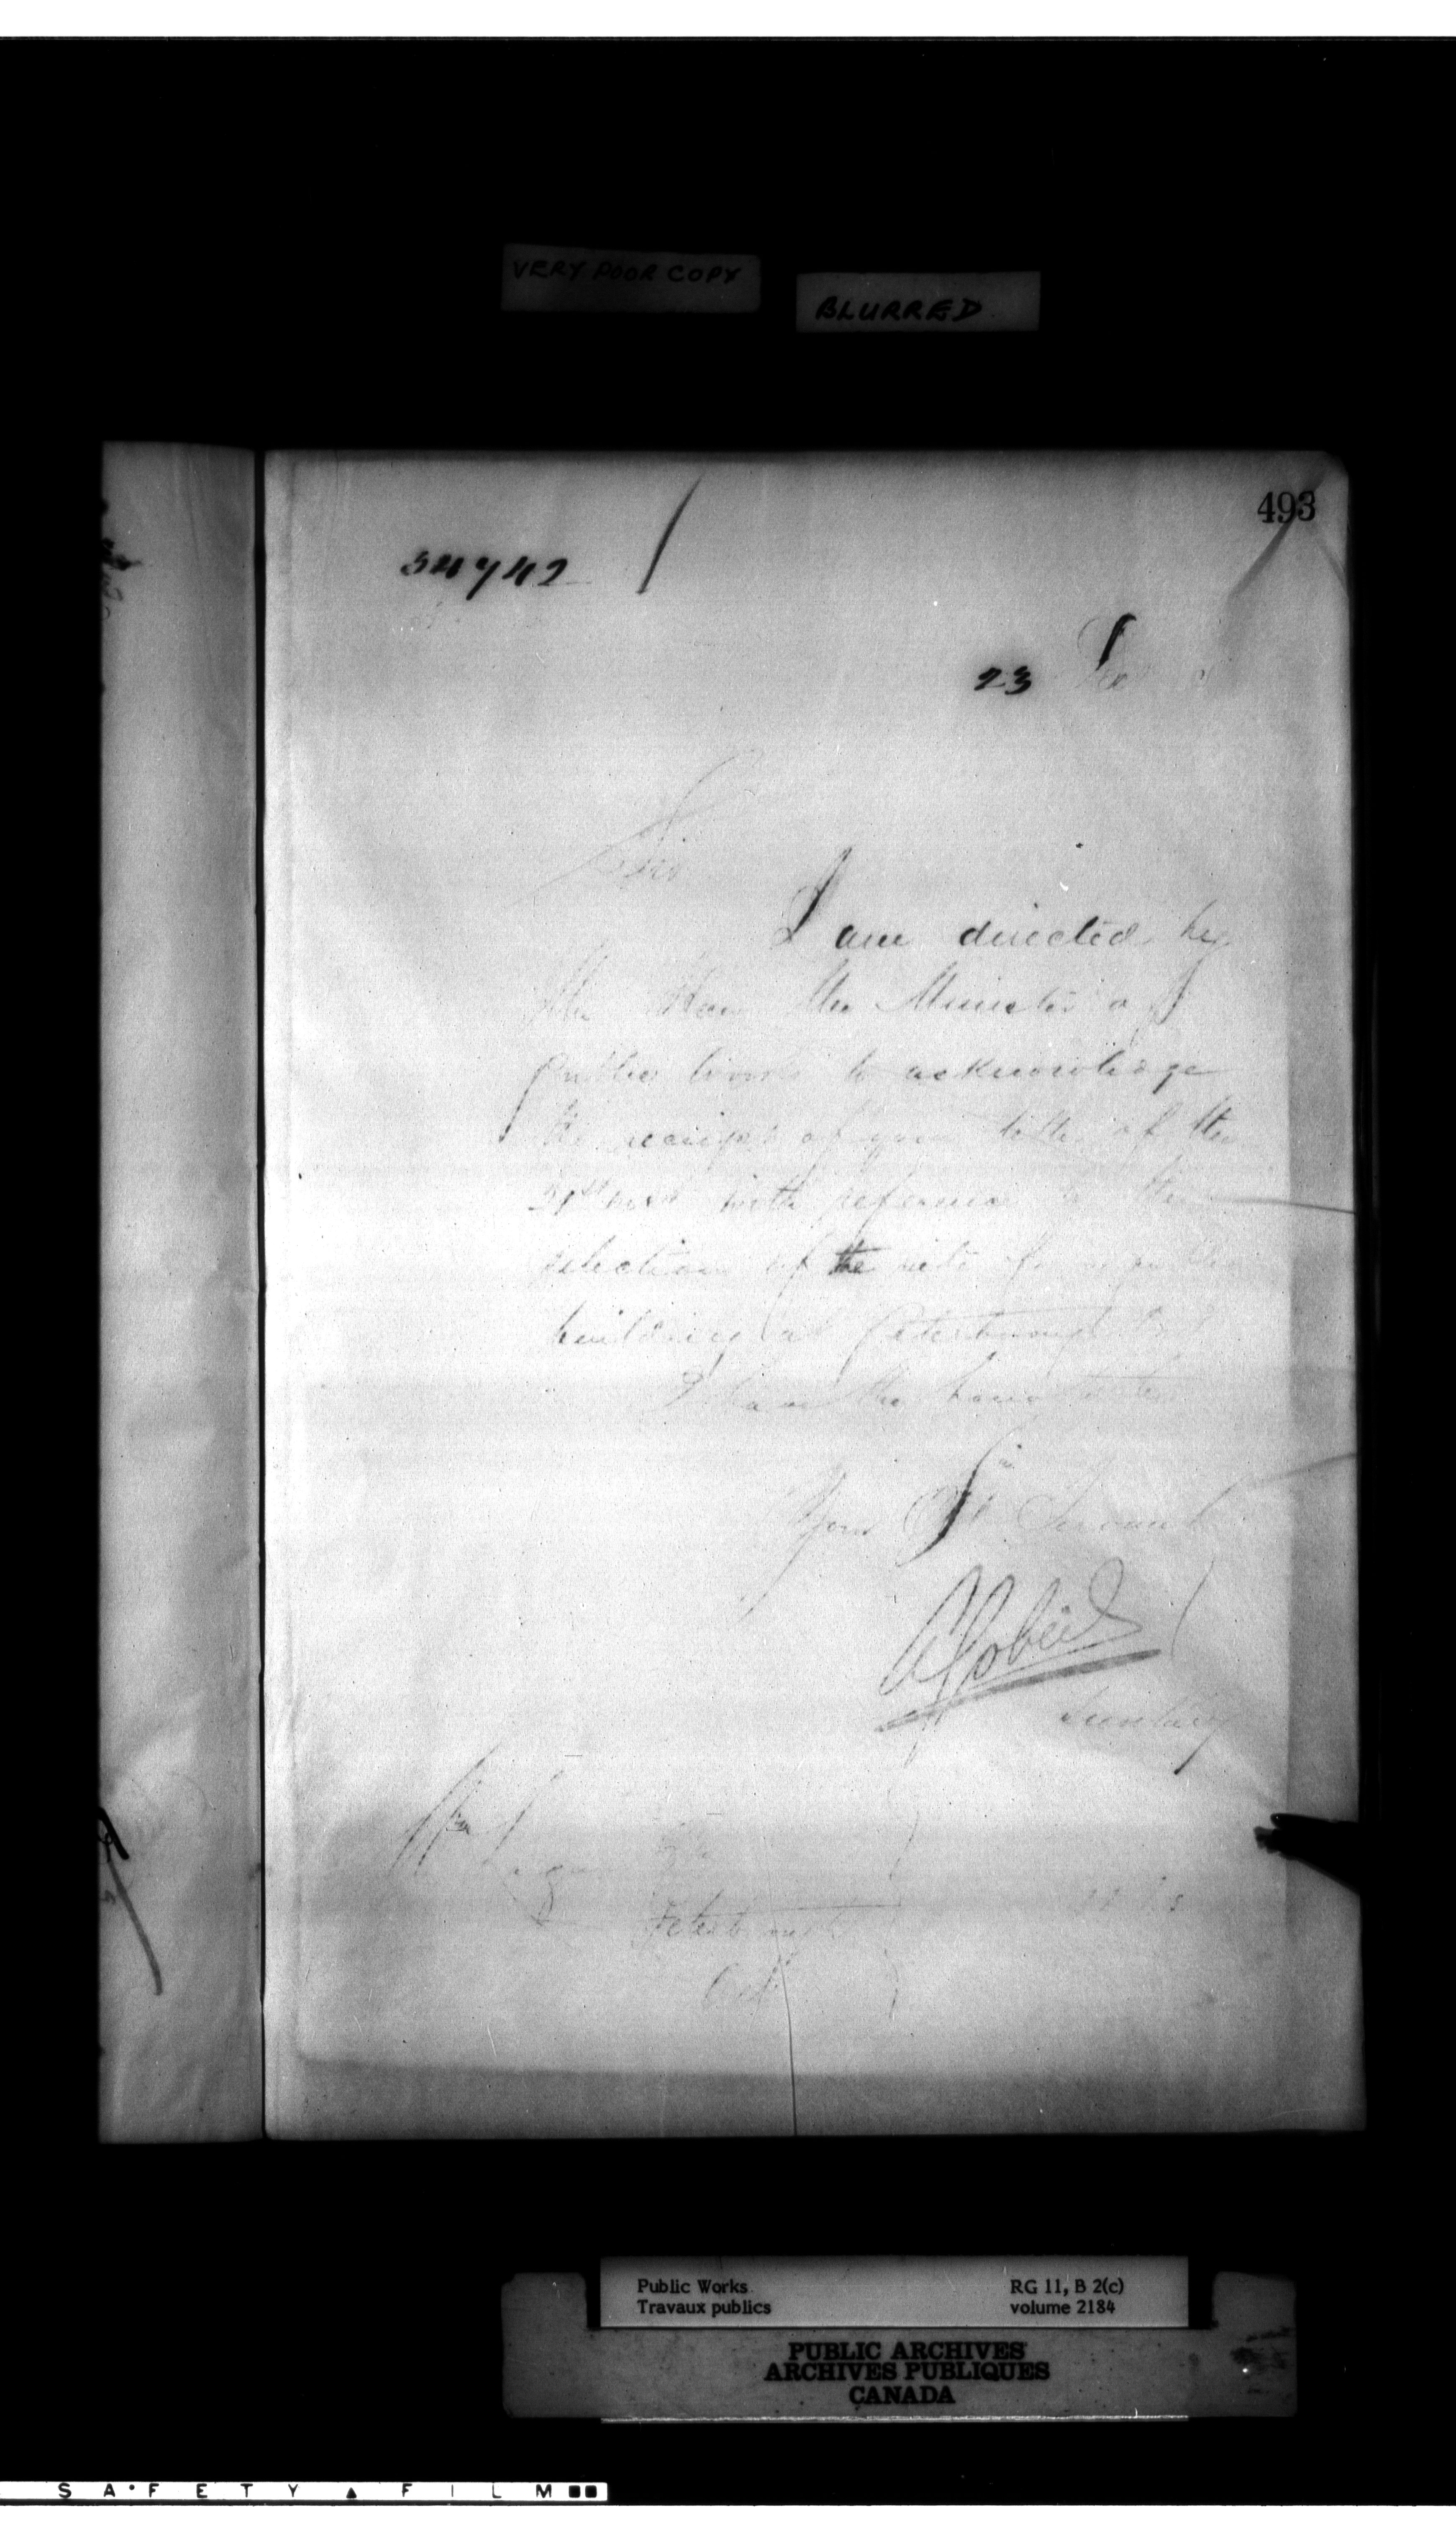 VERY POOR COPY
BLURRED
493
34742
23
Sir
I am directed by
the Hon the Minister of
Public Works to acknowledge
the receipt of your letter of the
21st inst with reference to the
selection of the site for a public
building at Peterborough
I have the honor to be
Sir
Your Obt Servant
Secretary
Wm
Peterborough
Ont
Public Works
Travaux publics
RG 11, B 2(c)
volume 2184
PUBLIC ARCHIVES
ARCHIVES PUBLIQUES
CANADA
SAFETY FILM